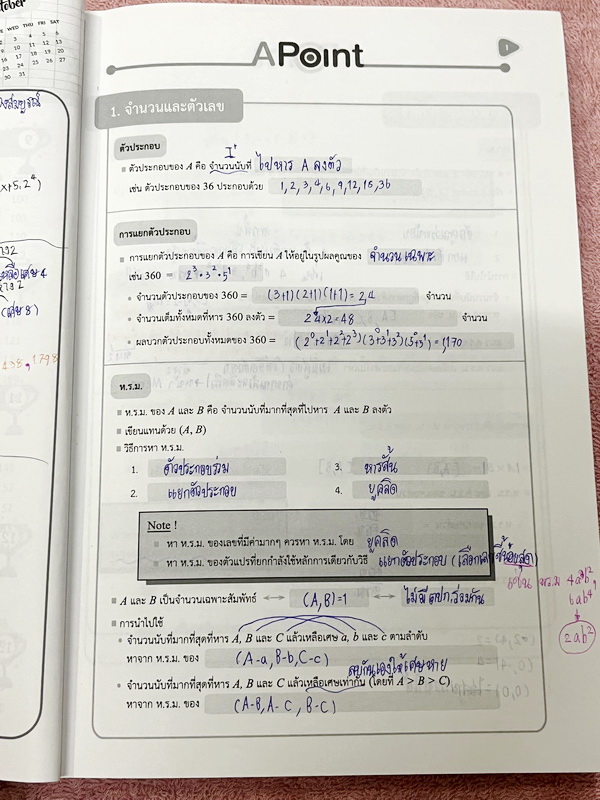 tober
TUE WED THU FRI SAT
APoint
1
1. จำนวนและตัวเลข
ตัวประกอบ
I⁺
ตัวประกอบของ A คือ จำนวนนับที่ ไปหาร A ลงตัว
เช่น ตัวประกอบของ 36 ประกอบด้วย 1, 2, 3, 4, 6, 9, 12, 18, 36
การแยกตัวประกอบ
การแยกตัวประกอบของ A คือ การเขียน A ให้อยู่ในรูปผลคูณของ จำนวนเฉพาะ
เช่น 360 = 2³·3²·5¹
จำนวนตัวประกอบของ 360 = (3+1)(2+1)(1+1) = 24 จำนวน
จำนวนเต็มทั้งหมดที่หาร 360 ลงตัว = 24×2 = 48 จำนวน
ผลบวกตัวประกอบทั้งหมดของ 360 = (2⁰+2¹+2²+2³)(3⁰+3¹+3²)(5⁰+5¹) = 1,170
ห.ร.ม.
ห.ร.ม. ของ A และ B คือ จำนวนนับที่มากที่สุดที่ไปหาร A และ B ลงตัว
เขียนแทนด้วย (A, B)
วิธีการหา ห.ร.ม.
1. ตัวประกอบร่วม 3. หารสั้น
2. แยกตัวประกอบ 4. ยูคลิด
Note !
หา ห.ร.ม. ของเลขที่มีค่ามากๆ ควรหา ห.ร.ม. โดย ยูคลิด
หา ห.ร.ม. ของตัวแปรที่ยกกำลังใช้หลักการเดียวกับวิธี แยกตัวประกอบ (เลือกเลขชี้น้อยสุด)
เช่น ห.ร.ม 4a³b²,
6ab⁴
2ab²
A และ B เป็นจำนวนเฉพาะสัมพัทธ์ ↔ (A,B)=1 ↔ ไม่มี ตปก.ร่วมกัน
การนำไปใช้
จำนวนนับที่มากที่สุดที่หาร A, B และ C แล้วเหลือเศษ a, b และ c ตามลำดับ
หาจาก ห.ร.ม. ของ (A-a, B-b, C-c)
ลบกันเองให้เศษหาย
จำนวนนับที่มากที่สุดที่หาร A, B และ C แล้วเหลือเศษเท่ากัน (โดยที่ A > B > C)
หาจาก ห.ร.ม. ของ (A-B, A-C, B-C)